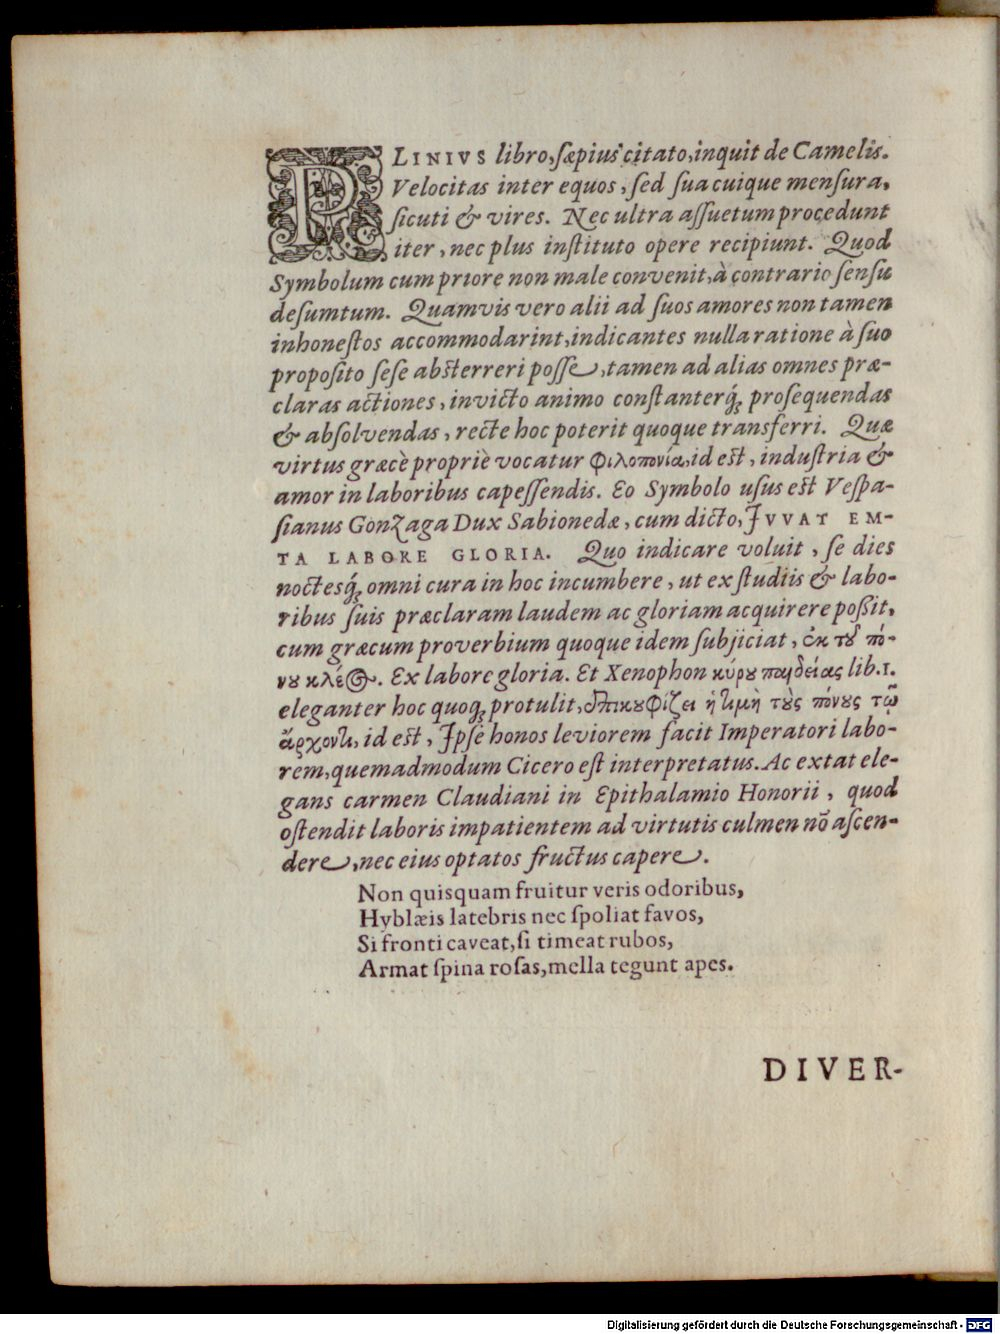 PLINIVS libro, sæpius citato, inquit de Camelis.
Velocitas inter equos, sed sua cuique mensura,
sicuti & vires. Nec ultra assuetum procedunt
iter, nec plus instituto opere recipiunt. Quod
Symbolum cum priore non male convenit, à contrario sensu
desumtum. Quamvis vero alii ad suos amores non tamen
inhonestos accommodarint, indicantes nulla ratione à suo
proposito sese absterreri posse, tamen ad alias omnes præ-
claras actiones, invicto animo constanterq́; prosequendas
& absolvendas, recte hoc poterit quoque transferri. Quæ
virtus græcè propriè vocatur φιλοπονία, id est, industria &
amor in laboribus capessendis. Eo Symbolo usus est Vespa-
sianus Gonzaga Dux Sabionedæ, cum dicto, IVVAT EM-
TA LABORE GLORIA. Quo indicare voluit, se dies
noctesq́; omni cura in hoc incumbere, ut ex studiis & labo-
ribus suis præclaram laudem ac gloriam acquirere possit,
cum græcum proverbium quoque idem subjiciat, ἐκ τοῦ πό-
νου κλέος. Ex labore gloria. Et Xenophon κύρου παιδείας lib. 1.
eleganter hoc quoq; protulit, ἐπικουφίζει ἡ τιμὴ τοὺς πόνους τῷ
ἄρχοντι, id est, Ipse honos leviorem facit Imperatori labo-
rem, quemadmodum Cicero est interpretatus. Ac extat ele-
gans carmen Claudiani in Epithalamio Honorii, quod
ostendit laboris impatientem ad virtutis culmen nō ascen-
dere, nec eius optatos fructus capere.
Non quisquam fruitur veris odoribus,
Hyblæis latebris nec spoliat favos,
Si fronti caveat, si timeat rubos,
Armat spina rosas, mella tegunt apes.
DIVER-
Digitalisierung gefördert durch die Deutsche Forschungsgemeinschaft - DFG